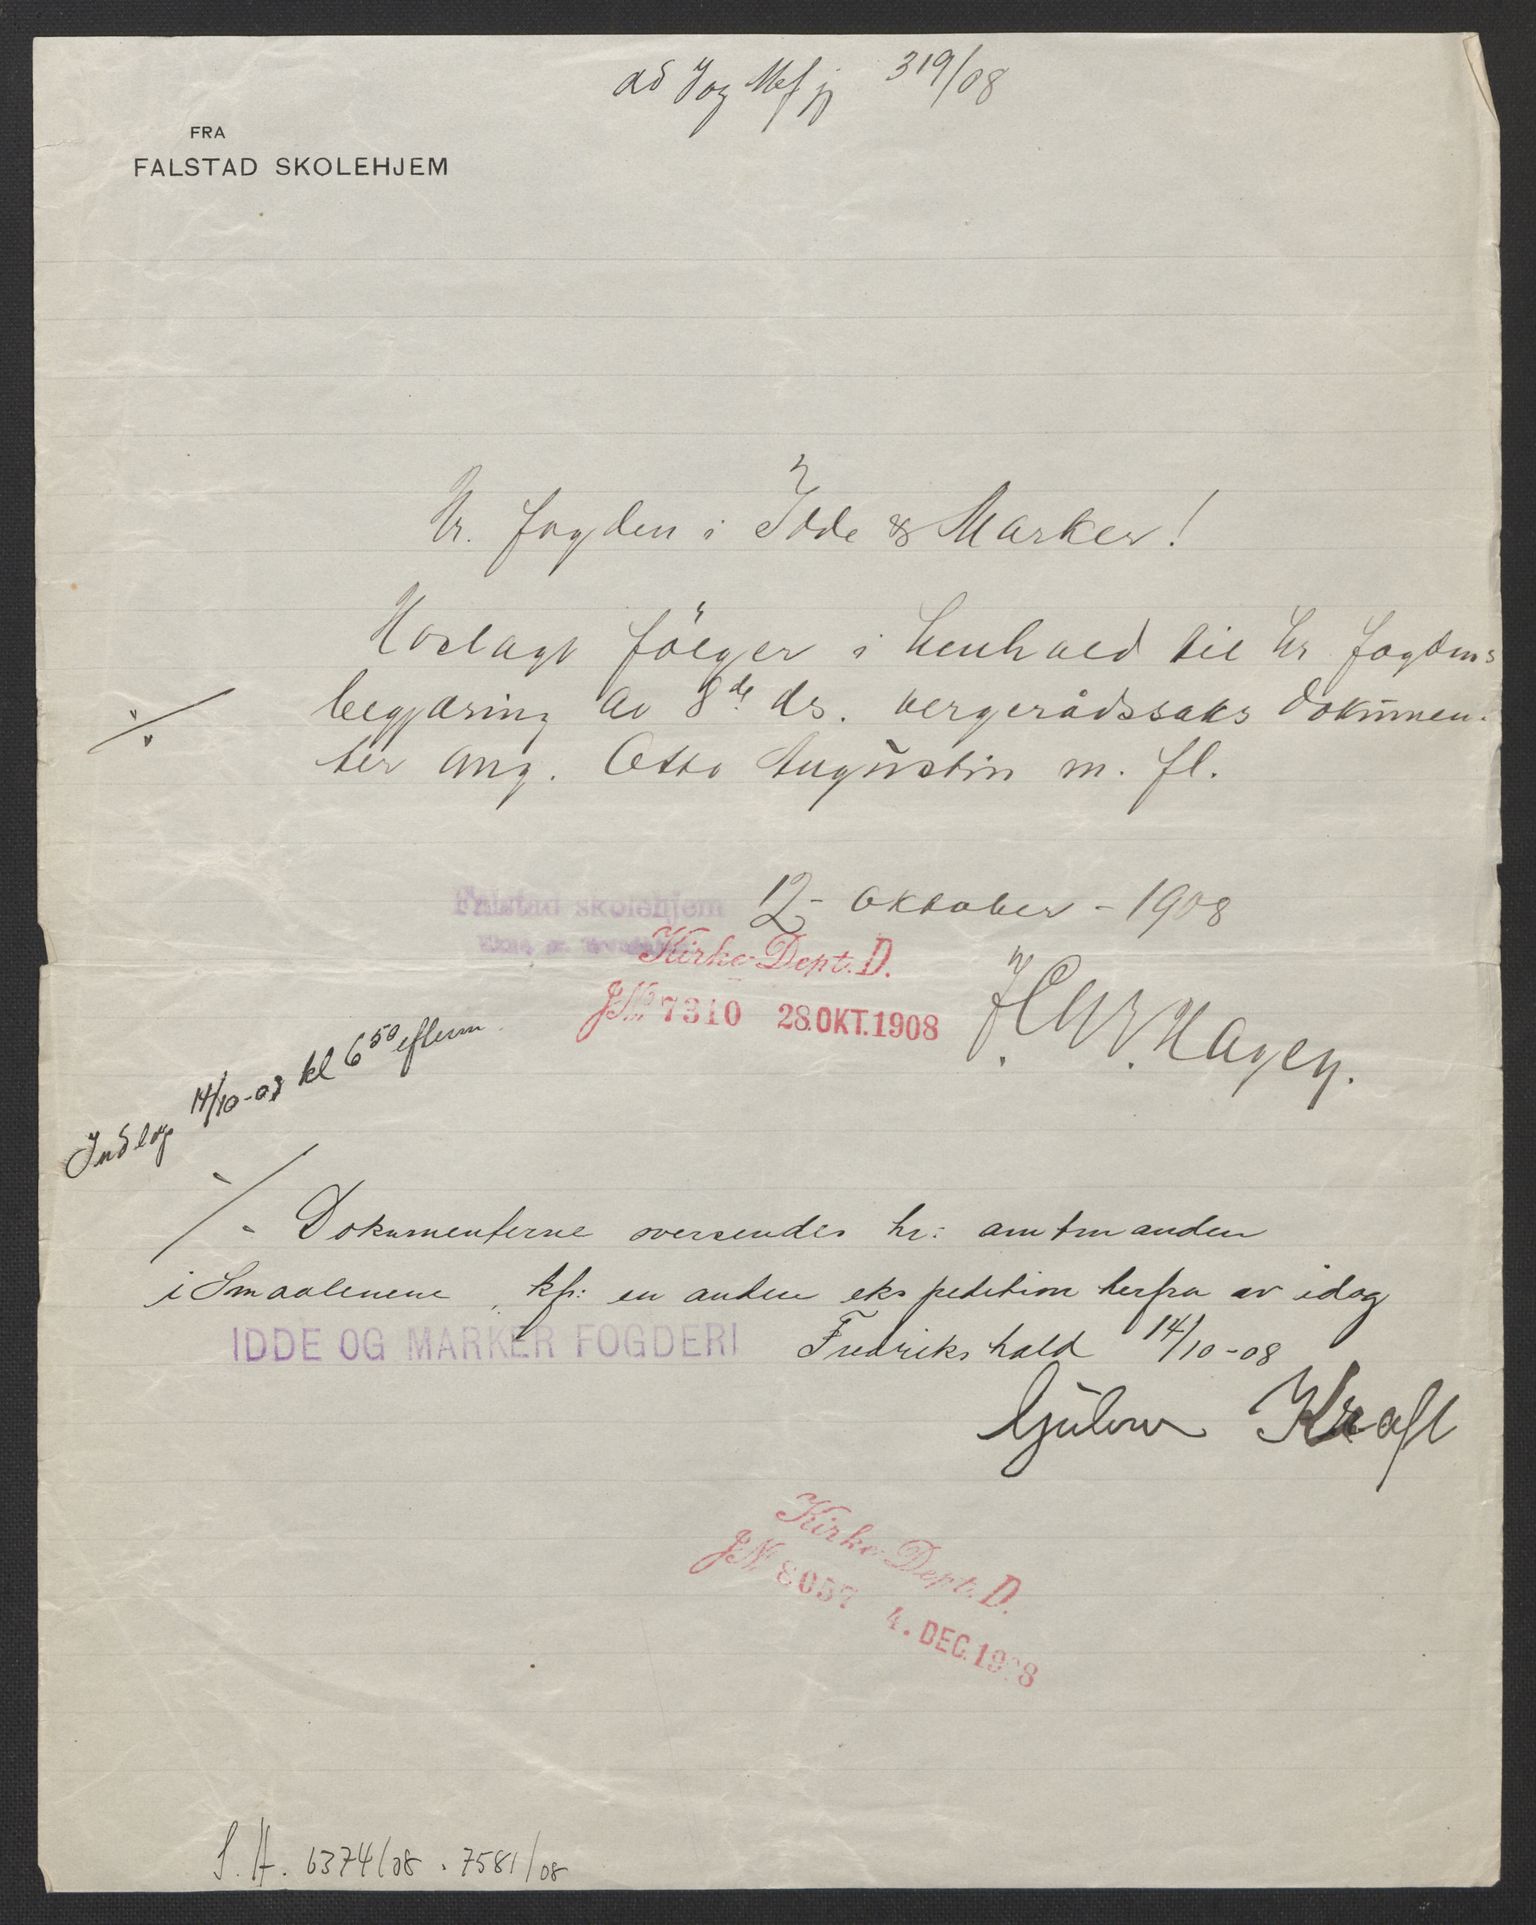 ad Jog 319/08
FRA
FALSTAD SKOLEHJEM
Hr. fogden i Idde & Marker!
Hoslagt følger i henhold til hr fogdens
begjæring av 8de ds. vergerådssaks dokumen-
ter ang. Otto Augustin m. fl.
Falstad skolehjem 12 - oktober - 1908
Kirke-Dept. D.
J.№ 7310 28.OKT.1908
Hagen.
Indlag 14/10-08 kl 6 50 efterm
Dokumenterne oversendes hr: amtmanden
i Smaalenene, kfr: en anden ekspedition herfra av idag
IDDE OG MARKER FOGDERI Fredrikshald 14/10-08
Kraft
Kirke-Dept. D.
J.№ 8057 4. DEC. 1908
S.H. 6374/08. 7581/08